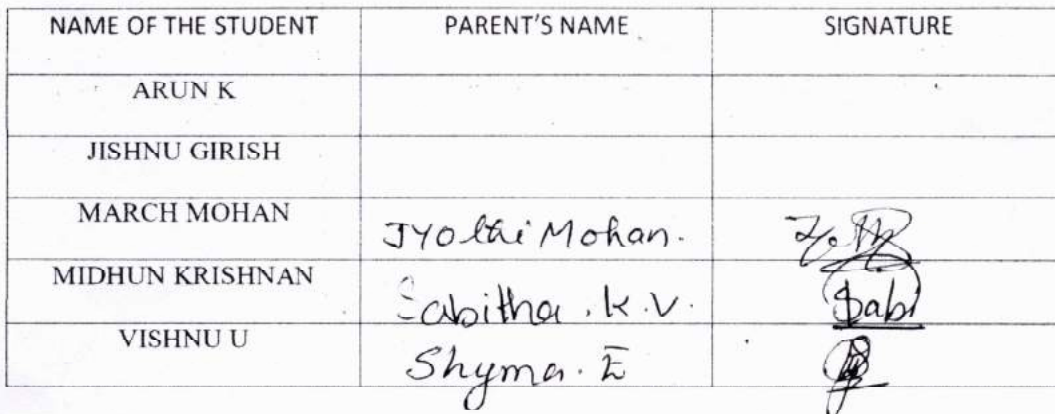 NAME OF THE STUDENT PARENT'S NAME SIGNATURE
ARUN K
JISHNU GIRISH
MARCH MOHAN Jyothi Mohan.
MIDHUN KRISHNAN Sabitha . K.V. Sabi
VISHNU U Shyma. E